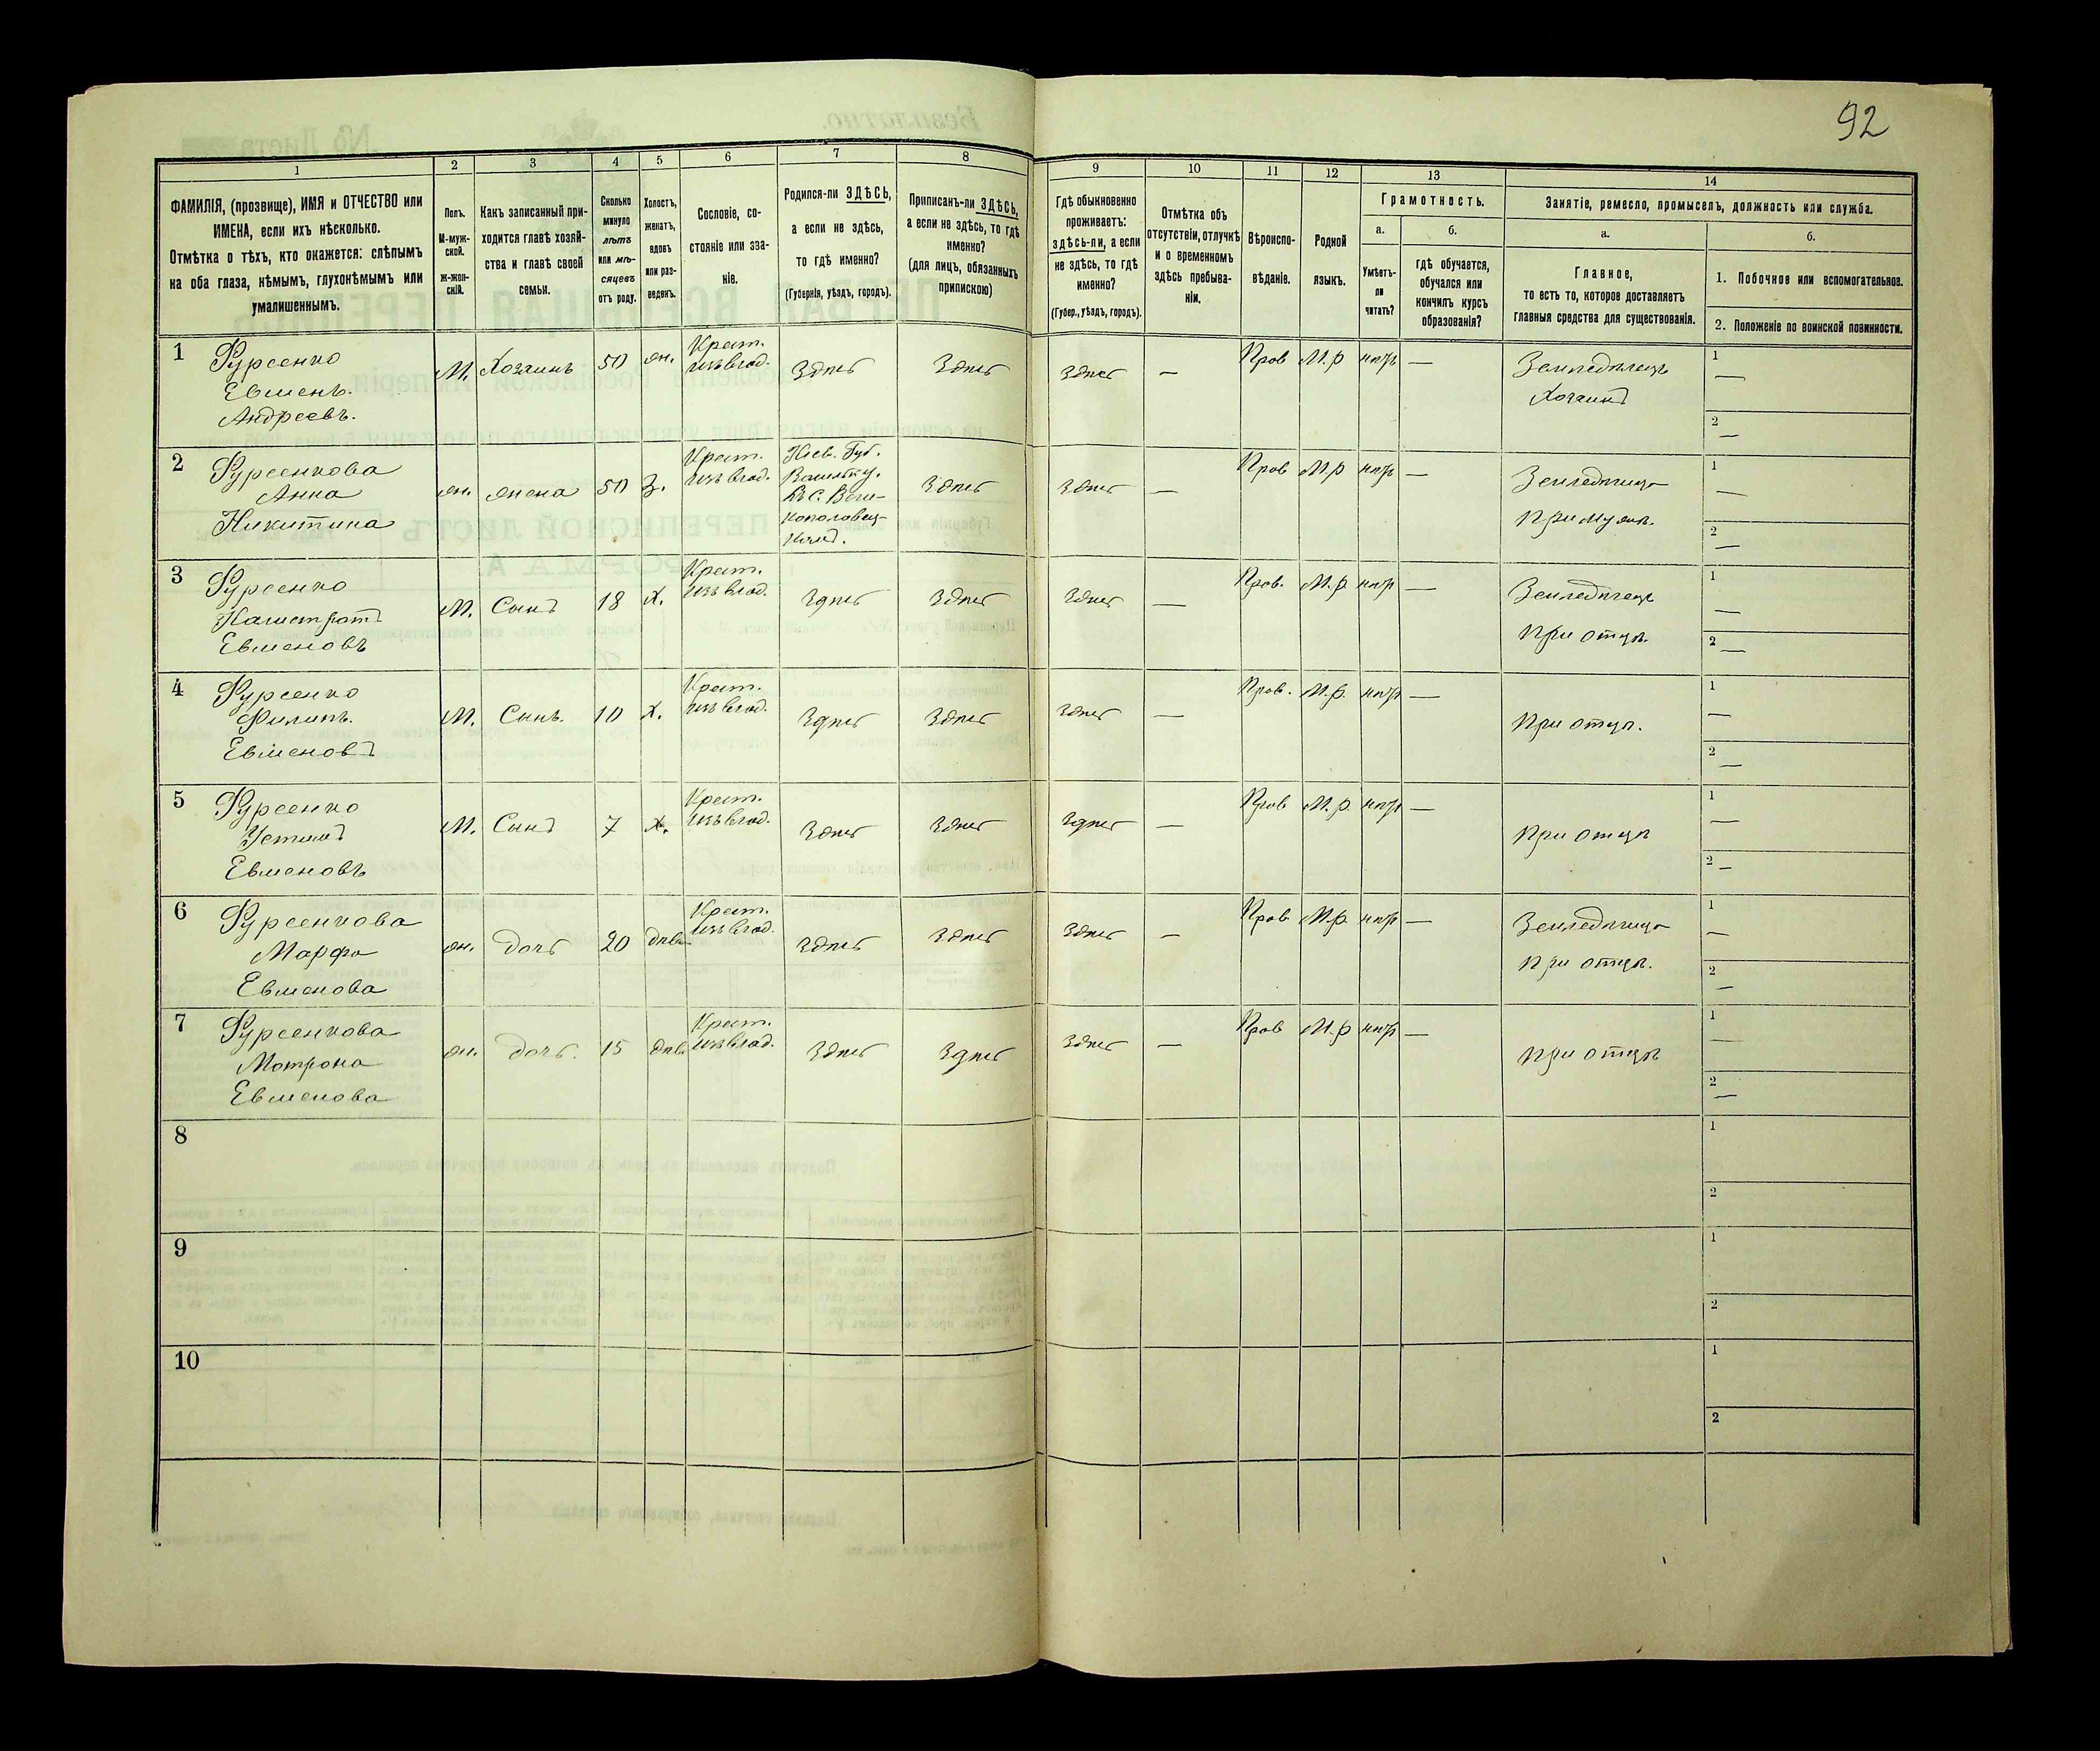 92
1 2 3 4 5 6 7 8 9 10 11 12 13 14
ФАМИЛІЯ, (прозвище), ИМЯ и ОТЧЕСТВО или
ИМЕНА, если ихъ нѣсколько.
Отмѣтка о тѣхъ, кто окажется: слѣпымъ
на оба глаза, нѣмымъ, глухонѣмымъ или
умалишеннымъ.
Полъ.
М-муж-
ской.
Ж-жен-
скій.
Какъ записанный при-
ходится главѣ хозяй-
ства и главѣ своей
семьи.
Сколько
минуло
лѣтъ
или мѣ-
сяцевъ
отъ роду.
Холостъ,
женатъ,
вдовъ
или раз-
веденъ.
Сословіе, со-
стояніе или зва-
ніе.
Родился-ли ЗДѢСЬ,
а если не здѣсь,
то гдѣ именно?
(Губернія, уѣздъ, городъ).
Приписанъ-ли ЗДѢСЬ,
а если не здѣсь, то гдѣ
именно?
(для лицъ, обязанныхъ
припискою)
Гдѣ обыкновенно
проживаетъ:
здѣсь-ли, а если
не здѣсь, то гдѣ
именно?
(Губер., уѣздъ, городъ).
Отмѣтка объ
отсутствіи, отлучкѣ
и о временномъ
здѣсь пребыва-
ніи.
Вѣроиспо-
вѣданіе.
Родной
языкъ.
Грамотность.
а.
Умѣетъ-
ли
читать?
б.
гдѣ обучается,
обучался или
кончилъ курсъ
образованія?
Занятіе, ремесло, промыселъ, должность или служба.
а.
Главное,
то есть то, которое доставляетъ
главныя средства для существованія.
б.
1. Побочное или вспомогательное.
2. Положеніе по воинской повинности.
1 Фурсенко
Евменъ.
Андреевъ.
М. Хозаинъ 50 жн.
Крест.
изъ влад.
Здѣсь Здѣсь Здѣсь — Пров М.р нѣтъ —
Земледѣлецъ
Хозаинъ
1 —
2 —
2 Фурсенкова
Анна
Никитина
жн. жена 50 З.
Крест.
изъ влад.
Кіев. Губ.
Здѣсь Здѣсь — Пров М.р нѣтъ —
При муж.
1 —
2 —
3 Фурсенко
Калистратъ
Евменовъ
М. Сынъ 18 х.
Крест.
изъ влад.
Здѣсь Здѣсь Здѣсь — Пров. М.р нѣтъ —
Земледѣлецъ
При отцѣ.
1 —
2 —
4 Фурсенко
Филипъ.
Евменовъ
М. Сынъ. 10 х.
Крест.
изъ влад.
Здѣсь Здѣсь Здѣсь — Пров. М.р. нѣтъ —
При отцѣ.
1 —
2 —
5 Фурсенко
Устимъ
Евменовъ
М. Сынъ 7 х.
Крест.
изъ влад.
Здѣсь Здѣсь Здѣсь — Пров М.р. нѣтъ —
При отцѣ
1 —
2 —
6 Фурсенкова
Марфа
Евменова
жн. дочь 20 двв.
Крест.
изъ влад.
Здѣсь Здѣсь Здѣсь — Пров М.р. нѣтъ —
При отцѣ.
1 —
2 —
7 Фурсенкова
Мотрона
Евменова
жн. дочь. 15 двв.
Крест.
изъ влад.
Здѣсь Здѣсь Здѣсь — Пров М.р нѣтъ —
При отцѣ
1 —
2 —
8
1
2
9
1
2
10
1
2